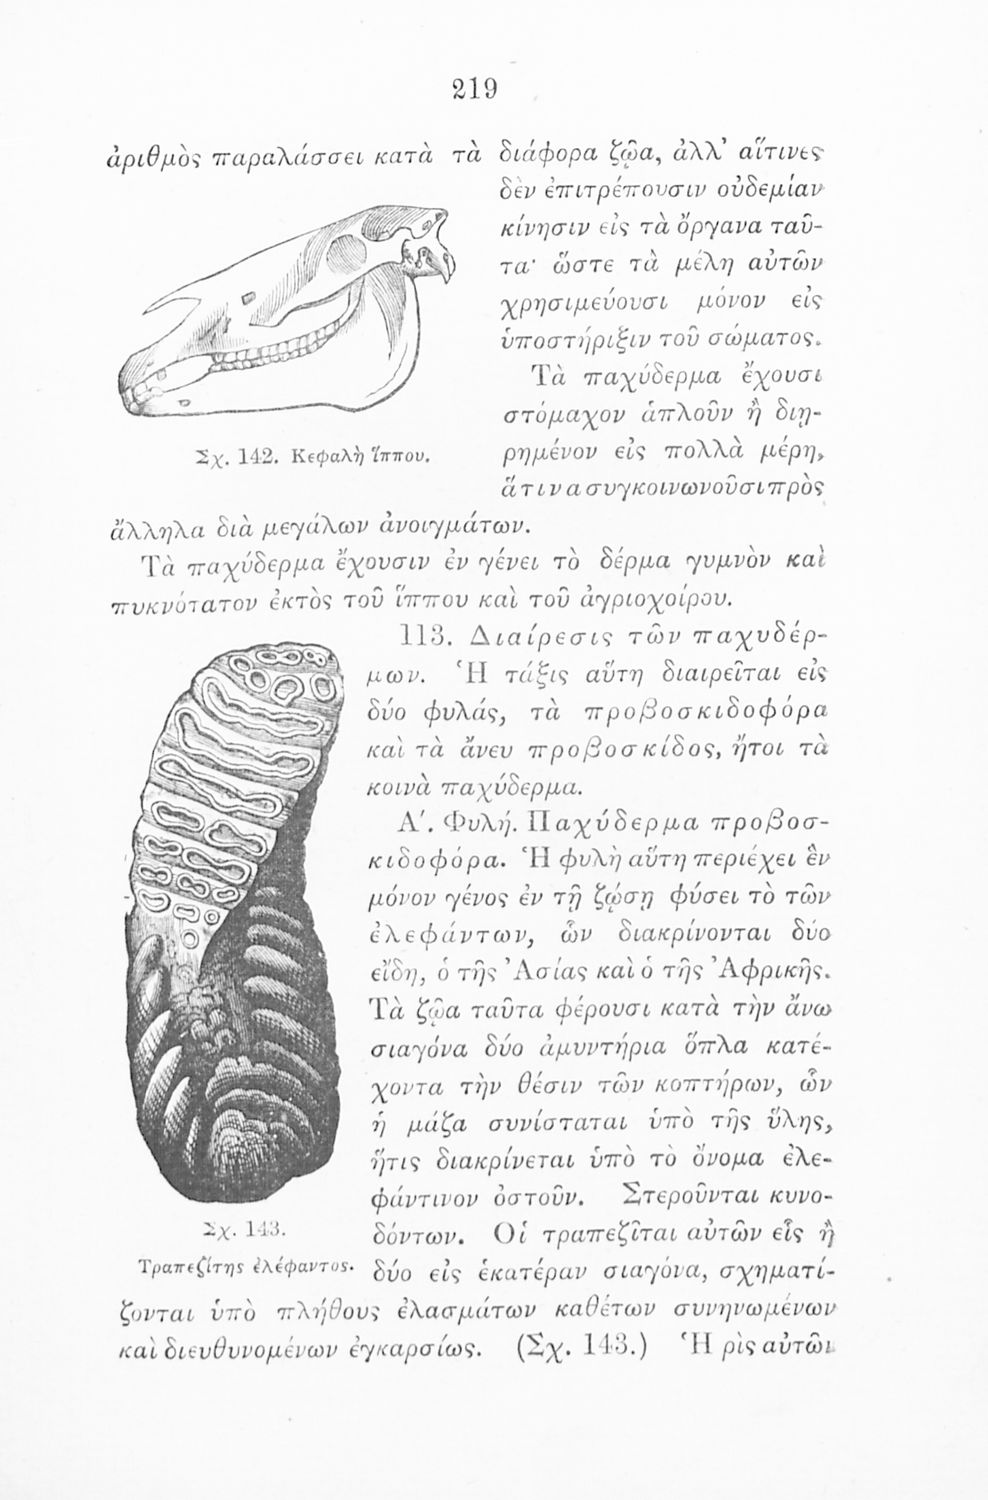 219
ἀριθμὸς παραλάσσει κατὰ τὰ διάφορα ζῷα, ἀλλ’ αἵτινες
δὲν ἐπιτρέπουσιν οὐδεμίαν
κίνησιν εἰς τὰ ὄργανα ταῦ-
τα· ὥστε τὰ μέλη αὐτῶν
χρησιμεύουσι μόνον εἰς
ὑποστήριξιν τοῦ σώματος.
Τὰ παχύδερμα ἔχουσι
στόμαχον ἁπλοῦν ἢ διῃ-
ρημένον εἰς πολλὰ μέρη,
ἅτινα συγκοινωνοῦσι πρὸς
Σχ. 142. Κεφαλὴ ἵππου.
ἄλληλα διὰ μεγάλων ἀνοιγμάτων.
Τὰ παχύδερμα ἔχουσιν ἐν γένει τὸ δέρμα γυμνὸν καὶ
πυκνότατον ἐκτὸς τοῦ ἵππου καὶ τοῦ ἀγριοχοίρου.
113. Διαίρεσις τῶν παχυδέρ-
μων. Ἡ τάξις αὕτη διαιρεῖται εἰς
δύο φυλάς, τὰ προβοσκιδοφόρα
καὶ τὰ ἄνευ προβοσκίδος, ἤτοι τὰ
κοινὰ παχύδερμα.
Α΄. Φυλή. Παχύδερμα προβοσ-
κιδοφόρα. Ἡ φυλὴ αὕτη περιέχει ἓν
μόνον γένος ἐν τῇ ζώσῃ φύσει τὸ τῶν
ἐλεφάντων, ὧν διακρίνονται δύο
εἴδη, ὁ τῆς Ἀσίας καὶ ὁ τῆς Ἀφρικῆς.
Τὰ ζῷα ταῦτα φέρουσι κατὰ τὴν ἄνω
σιαγόνα δύο ἀμυντήρια ὅπλα κατέ-
χοντα τὴν θέσιν τῶν κοπτήρων, ὧν
ἡ μάζα συνίσταται ὑπὸ τῆς ὕλης,
ἥτις διακρίνεται ὑπὸ τὸ ὄνομα ἐλε-
φάντινον ὀστοῦν. Στεροῦνται κυνο-
δόντων. Οἱ τραπεζῖται αὐτῶν εἷς ἢ
δύο εἰς ἑκατέραν σιαγόνα, σχηματί-
Σχ. 143.
Τραπεζίτης ἐλέφαντος.
ζονται ὑπὸ πλήθους ἐλασμάτων καθέτων συνηνωμένων
καὶ διευθυνομένων ἐγκαρσίως. (Σχ. 143.) Ἡ ρὶς αὐτῶν